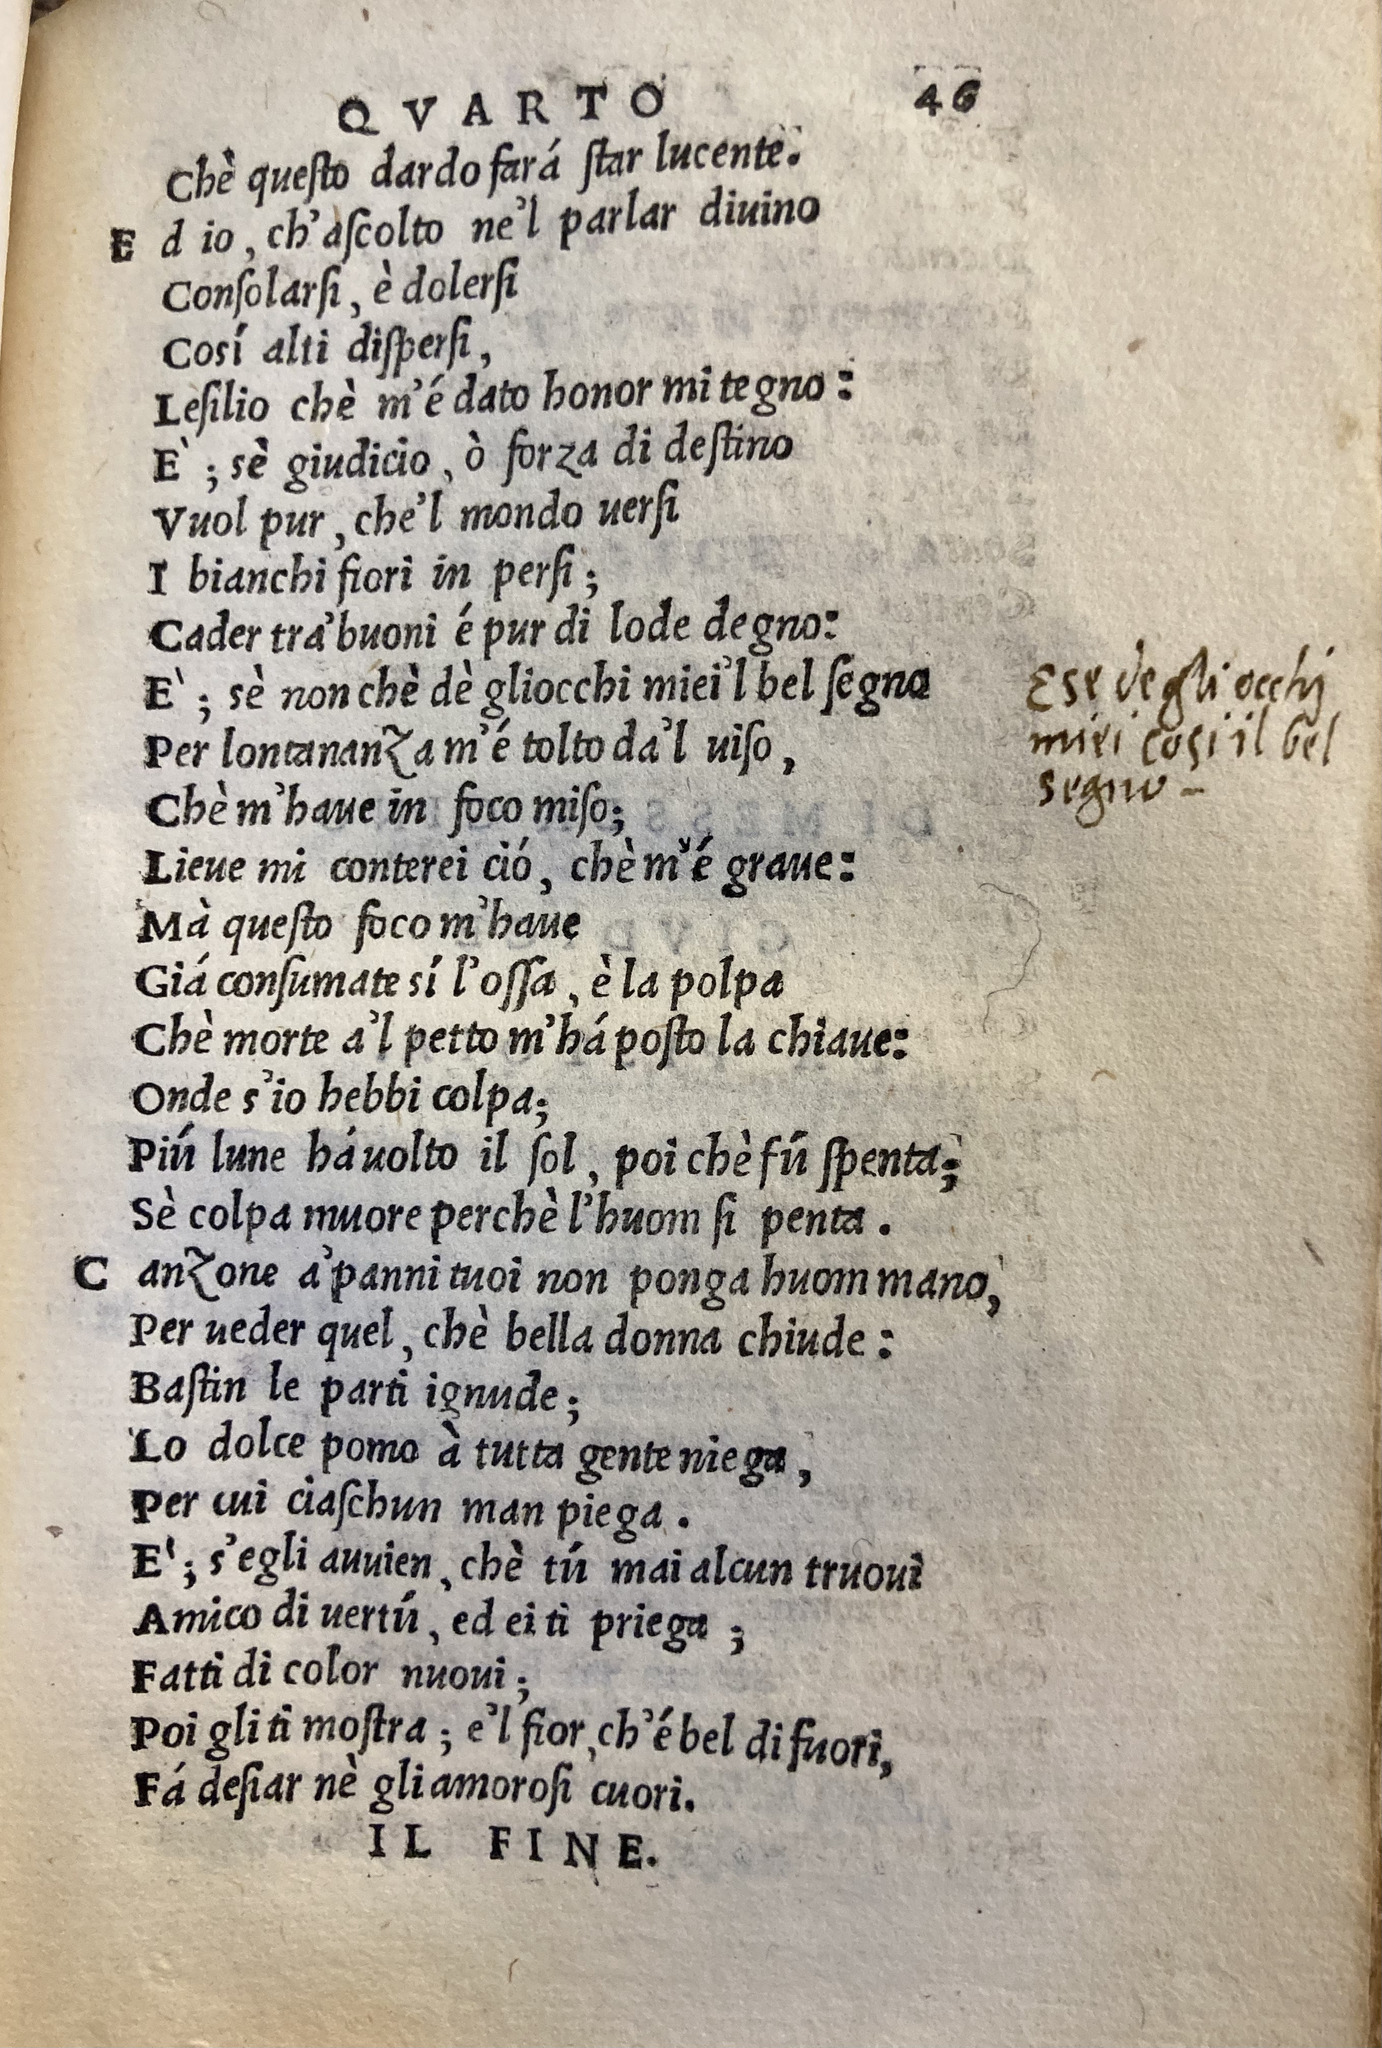 QVARTO 46
Chè questo dardo fará star lucente.
E d io, ch'ascolto ne'l parlar diuino
Consolarsi, è dolersi
Cosí alti dispersi,
Lesilio chè m'é dato honor mi tegno:
E`; sè giudicio, ò forza di destino
Vuol pur, che'l mondo uersi
I bianchi fiori in persi;
Cader tra'buoni é pur di lode degno:
E`; sè non chè dè gliocchi miei'l bel segno
Per lontananza m'é tolto da'l uiso,
Chè m'haue in foco miso;
Lieue mi conterei ció, chè m'é graue:
Mà questo foco m'haue
Giá consumate sí l'ossa, è la polpa
Chè morte a'l petto m'há posto la chiaue:
Onde s'io hebbi colpa;
Piú lune há uolto il sol, poi chè fú spenta;
Sè colpa muore perchè l'huom si penta.
C anzone a'panni tuoi non ponga huom mano,
Per ueder quel, chè bella donna chiude:
Bastin le parti ignude;
Lo dolce pomo à tutta gente niega,
Per cui ciaschun man piega.
E`; s'egli auuien, chè tú mai alcun truoui
Amico di uertú, ed ei ti priega;
Fatti di color nuoui;
Poi gli ti mostra; e'l fior, ch'é bel di fuori,
Fá desiar nè gli amorosi cuori.
IL FINE.
Ese degli occhi
miei cosi il bel
segno -